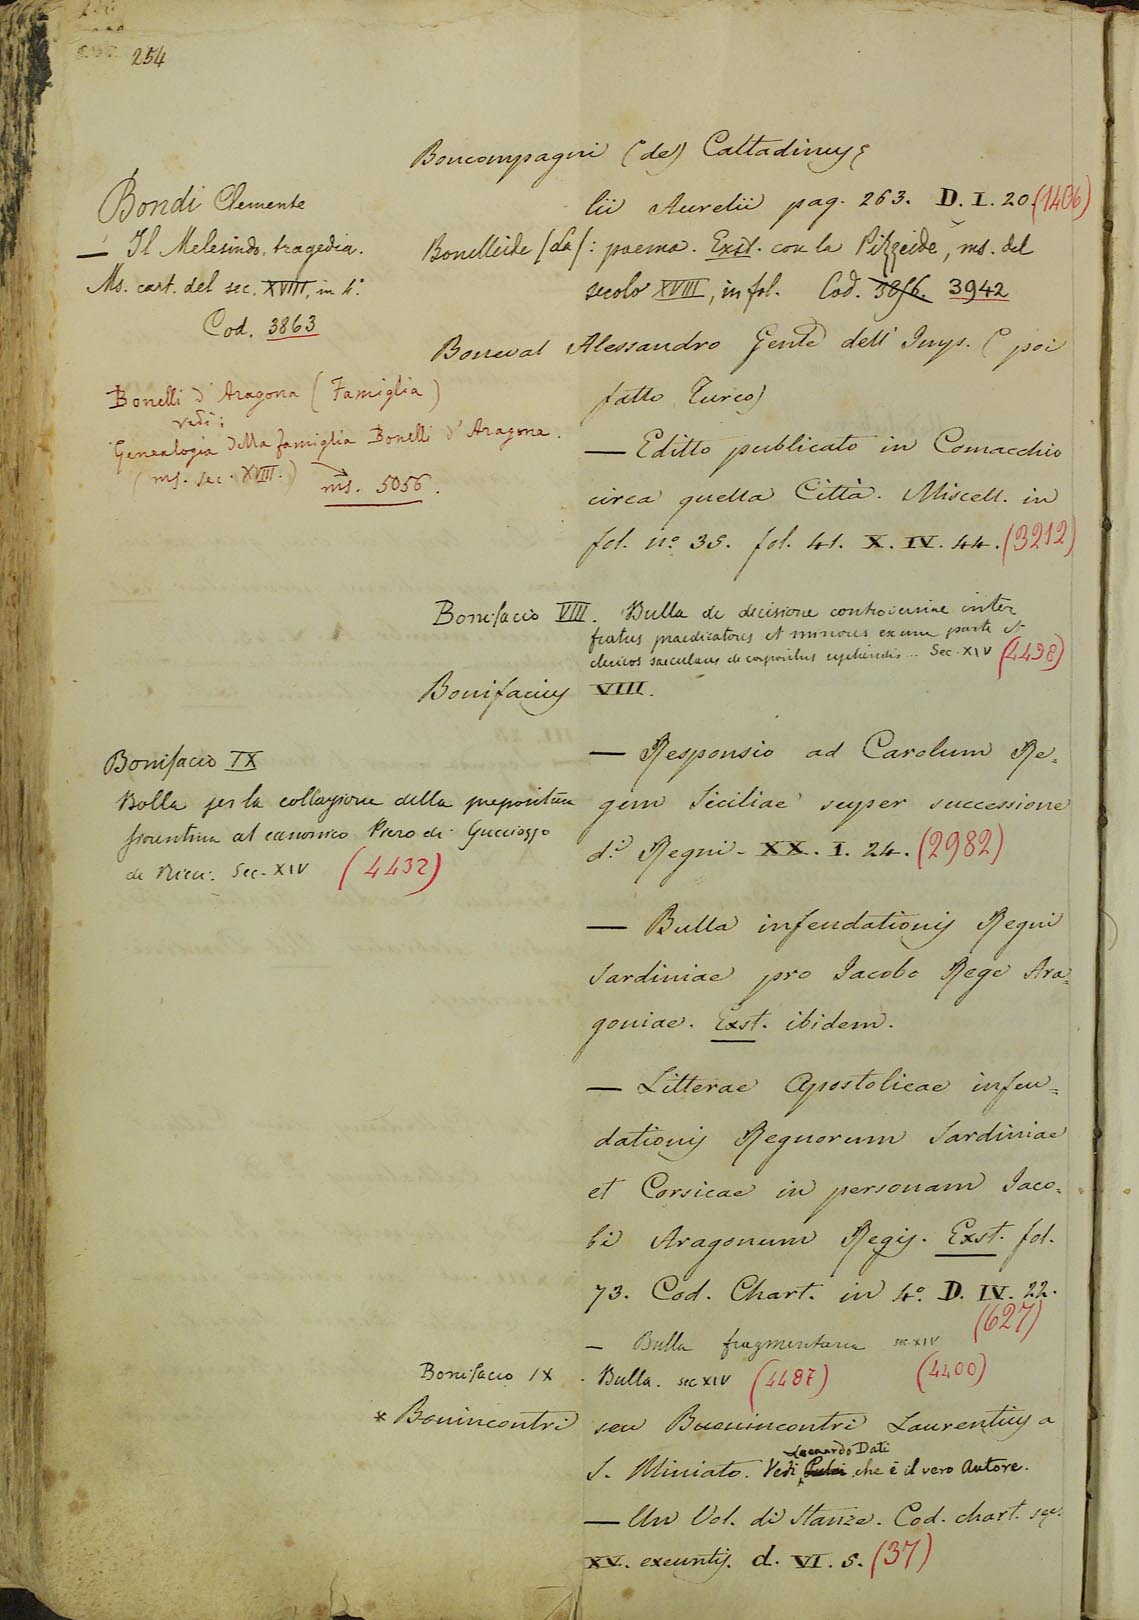 254
Boncompagni (de) Cattadinus
lii Aurelii pag. 263. D. I. 20. (1406)
Bonelleide (La): poema. Exst. con la Pizzeide, ms. del
secolo XVIII, in fol. Cod. 3942
Bonneval Alessandro Gen.le dell' Imp. (poi
fatto Turco)
— Editto publicato in Comacchio
circa quella Città. Miscell. in
fol. n.o 35. fol. 41. X. IV. 44. (3212)
Bonifacio VIII. Bulla de decisione controversiae inter
fratres praedicatores et minores ex una parte et
clericos saeculares de corporibus sepeliendis... Sec. XIV (4498)
Bonifacius VIII.
— Responsio ad Carolum Re=
gem Siciliae super successione
d.i Regni - XX. I. 24. (2982)
— Bulla infeudationis Regni
Sardiniae pro Jacobo Rege Ara=
goniae. Exst. ibidem.
— Litterae Apostolicae infeu=
dationis Regnorum Sardiniae
et Corsicae in personam Jaco=
bi Aragonum Regis. Exst. fol.
73. Cod. Chart. in 4.o D. IV. 22.
(627)
— Bulla fragmentaria sec XIV
(4400)
Bonifacio IX. Bulla. sec XIV (4487)
* Bonincontri seu Buonincontri Laurentius a
S. Miniato. Vedi Leonardo Dati che è il vero Autore.
— Un Vol. di Stanze. Cod. chart. sec.
XV. exeuntis. d. VI. 5. (37)
Bondi Clemente
— Il Melesindo, tragedia.
Ms. cart. del sec. XVIII, in 4.o
Cod. 3863
Bonelli d'Aragona (Famiglia)
vedi:
Genealogia della famiglia Bonelli d'Aragona.
(ms. sec. XVIII.)
ms. 5056.
Bonifacio IX
Bolla per la collazione della prepositura
fiorentina al canonico Piero di Gucciozzo
de Ricci. Sec. XIV (4432)